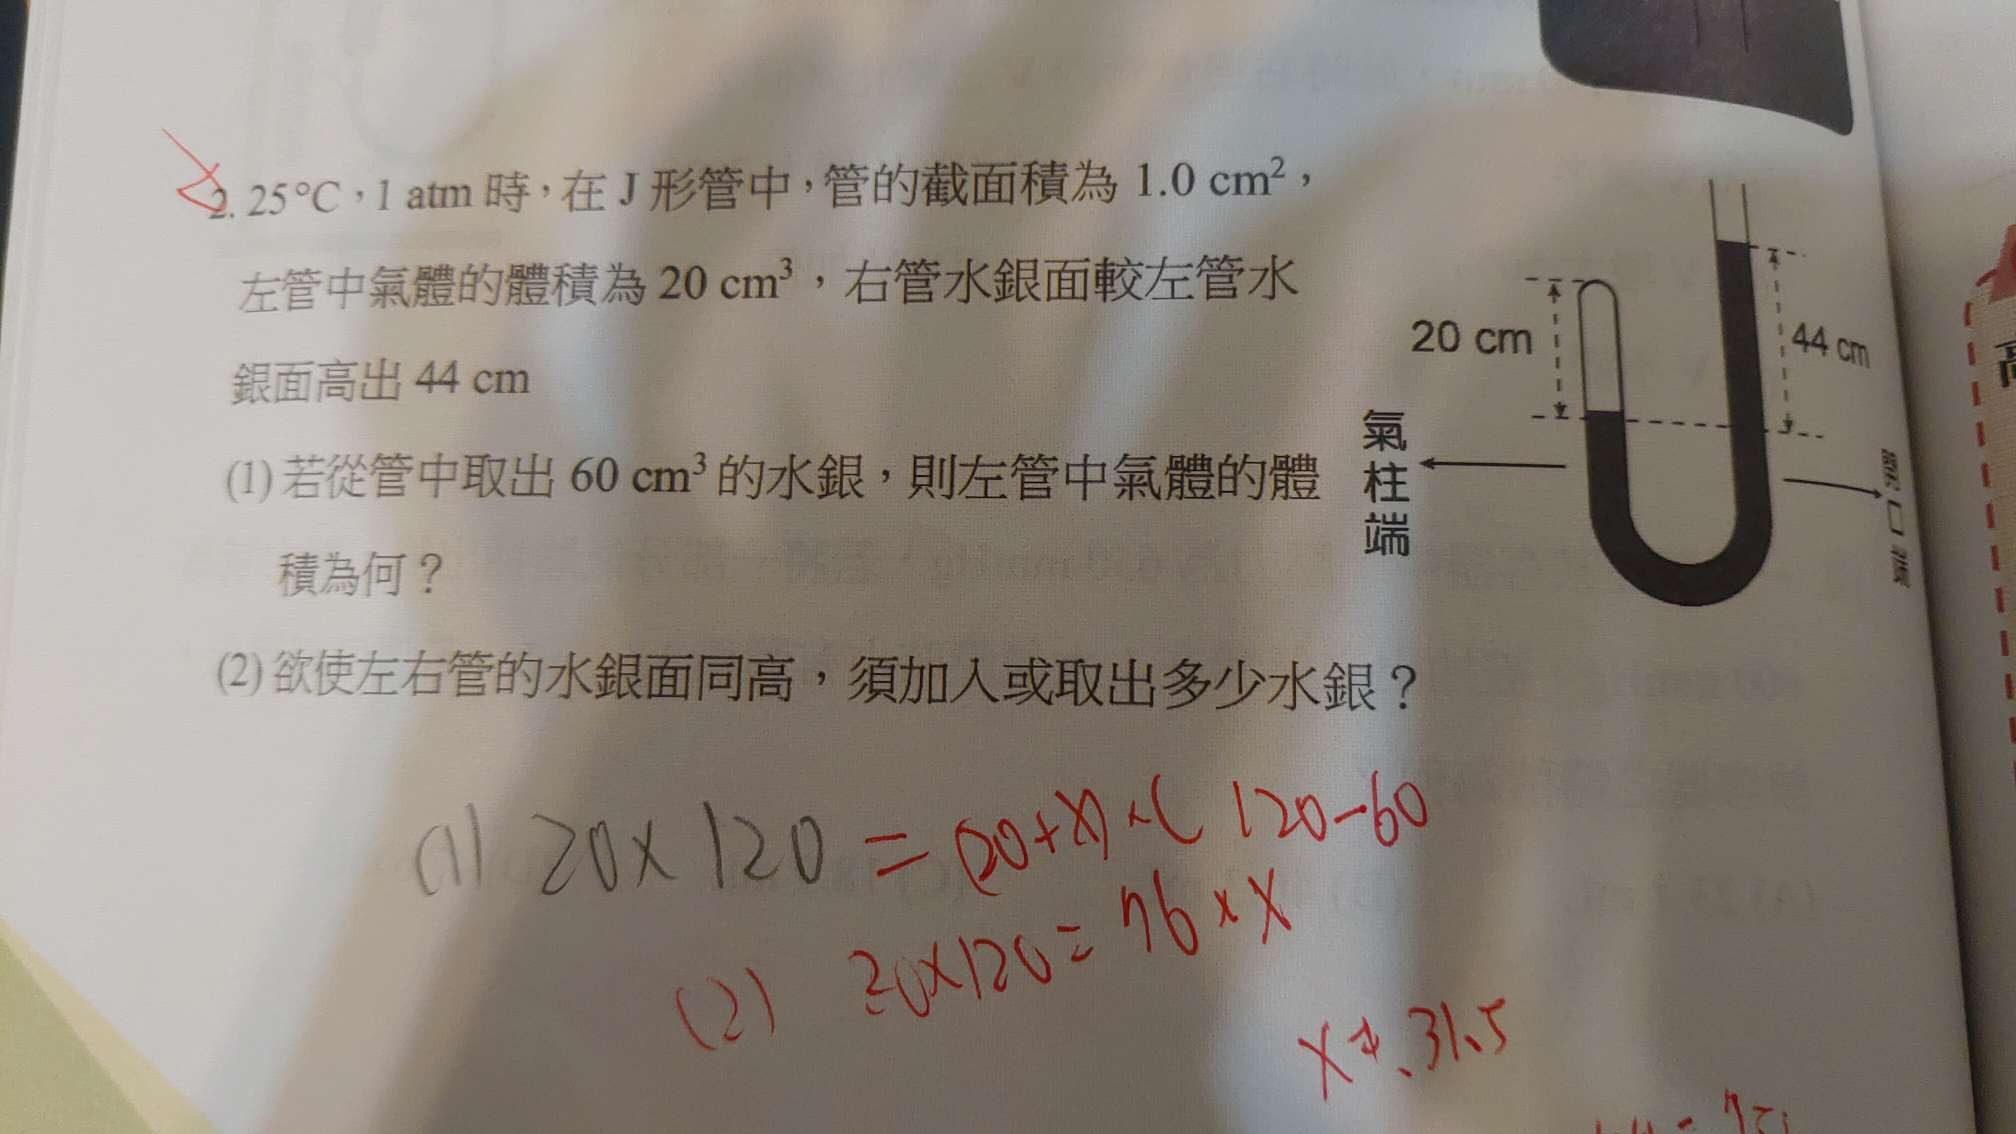 2. 25°C，1 atm 時，在 J 形管中，管的截面積為 1.0 cm²，
左管中氣體的體積為 20 cm³，右管水銀面較左管水
銀面高出 44 cm
(1) 若從管中取出 60 cm³ 的水銀，則左管中氣體的體
積為何？
(2) 欲使左右管的水銀面同高，須加入或取出多少水銀？
20 cm
44 cm
氣柱端
開口端
(1) 20×120 = (20+X)×( 120-60
(2) 20×120 = 76 × X
31.5